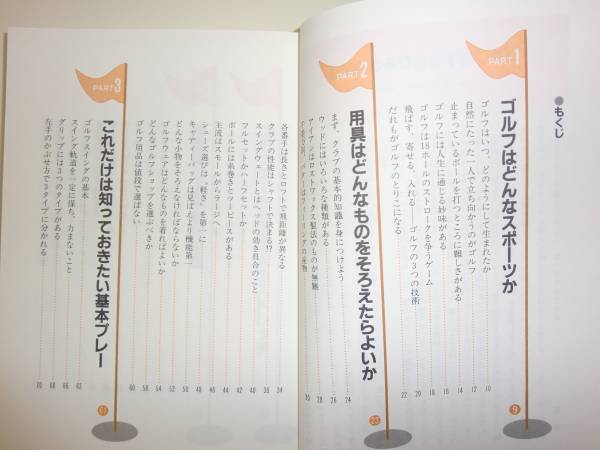 ●もくじ
PART 1
ゴルフはどんなスポーツか
9
ゴルフはいつ、どのようにして生まれたか 10
自然にたった一人で立ち向かうのがゴルフ 12
止まっているボールを打つところに難しさがある 14
ゴルフには人生に通じる妙味がある 16
ゴルフは18ホールのストロークを争うゲーム 18
飛ばす、寄せる、入れる——ゴルフの3つの技術 20
だれもがゴルフのとりこになる 22
PART 2
用具はどんなものをそろえたらよいか
23
まず、クラブの基本的知識を身につけよう 24
ウッドにはいろいろな種類がある 26
アイアンはロストワックス製法のものが無難 28
30
各番手は長さとロフトで飛距離が異なる 34
クラブの性能はシャフトで決まる!? 38
スイングウェートとはヘッドの効き具合のこと 39
フルセットかハーフセットか 40
ボールには糸巻きとツーピースがある 42
主流はスモールからラージへ 44
シューズ選びは“軽さ”を第一に 46
キャディーバッグは見ばえより機能第一 48
どんな小物をそろえなければならないか 50
ゴルフウェアはどんなものを着ればよいか 52
どんなゴルフショップを選ぶべきか 54
ゴルフ用品は値段で選ばない 58
60
PART 3
これだけは知っておきたい基本プレー
61
ゴルフスイングの基本 62
スイング軌道を一定に保ち、力まないこと 66
グリップには3つのタイプがある 68
左手のかぶせ方で3タイプに分かれる 70